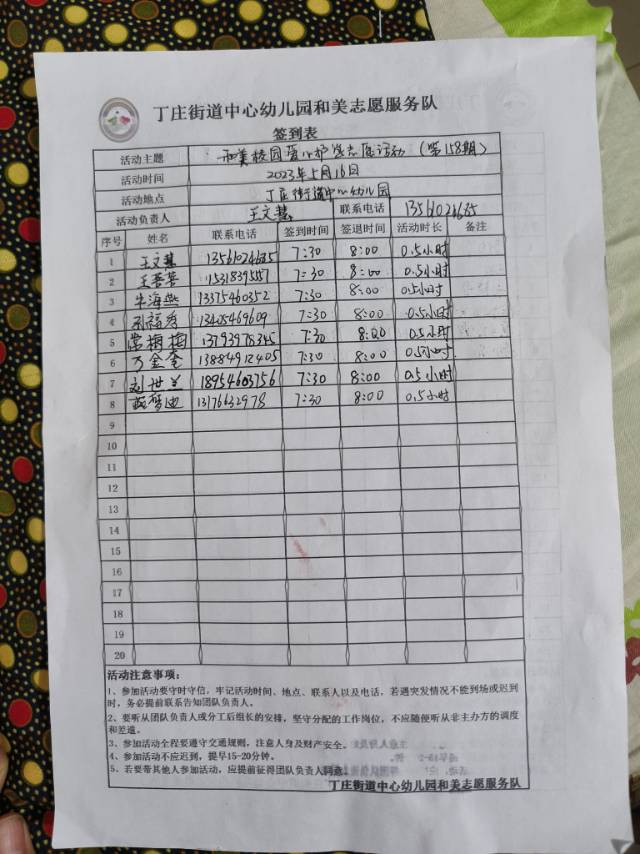 丁庄街道中心幼儿园和美志愿服务队
签到表
活动主题 和美校园爱心护学志愿活动（第158期）
活动时间 2023年5月16日
活动地点 丁庄街道中心幼儿园
活动负责人 王文慧 联系电话
序号 姓名 联系电话 签到时间 签退时间 活动时长 备注
1 王文慧 7:30 8:00 0.5小时
2 7:30 8:00 0.5小时
3 牛海燕 13375460352 7:30 8:00 0.5小时
4 孙福秀 13405469609 7:30 8:00 0.5小时
5 常梅梅 7:30 8:00 0.5小时
6 万金奎 13884912405 7:30 8:00 0.5小时
7 刘世兰 18954603756 7:30 8:00 0.5小时
8 7:30 8:00 0.5小时
9
10
11
12
13
14
15
16
17
18
19
20
活动注意事项：
1、参加活动要守时守信，牢记活动时间、地点、联系人以及电话，若遇突发情况不能到场或迟到
时，务必提前联系告知团队负责人。
2、要听从团队负责人或分工后组长的安排，坚守分配的工作岗位，不应随便听从非主办方的调度
和差遣。
3、参加活动全程要遵守交通规则，注意人身及财产安全。
4、参加活动不应迟到，提早15-20分钟。
5、若要带其他人参加活动，应提前征得团队负责人同意。
丁庄街道中心幼儿园和美志愿服务队